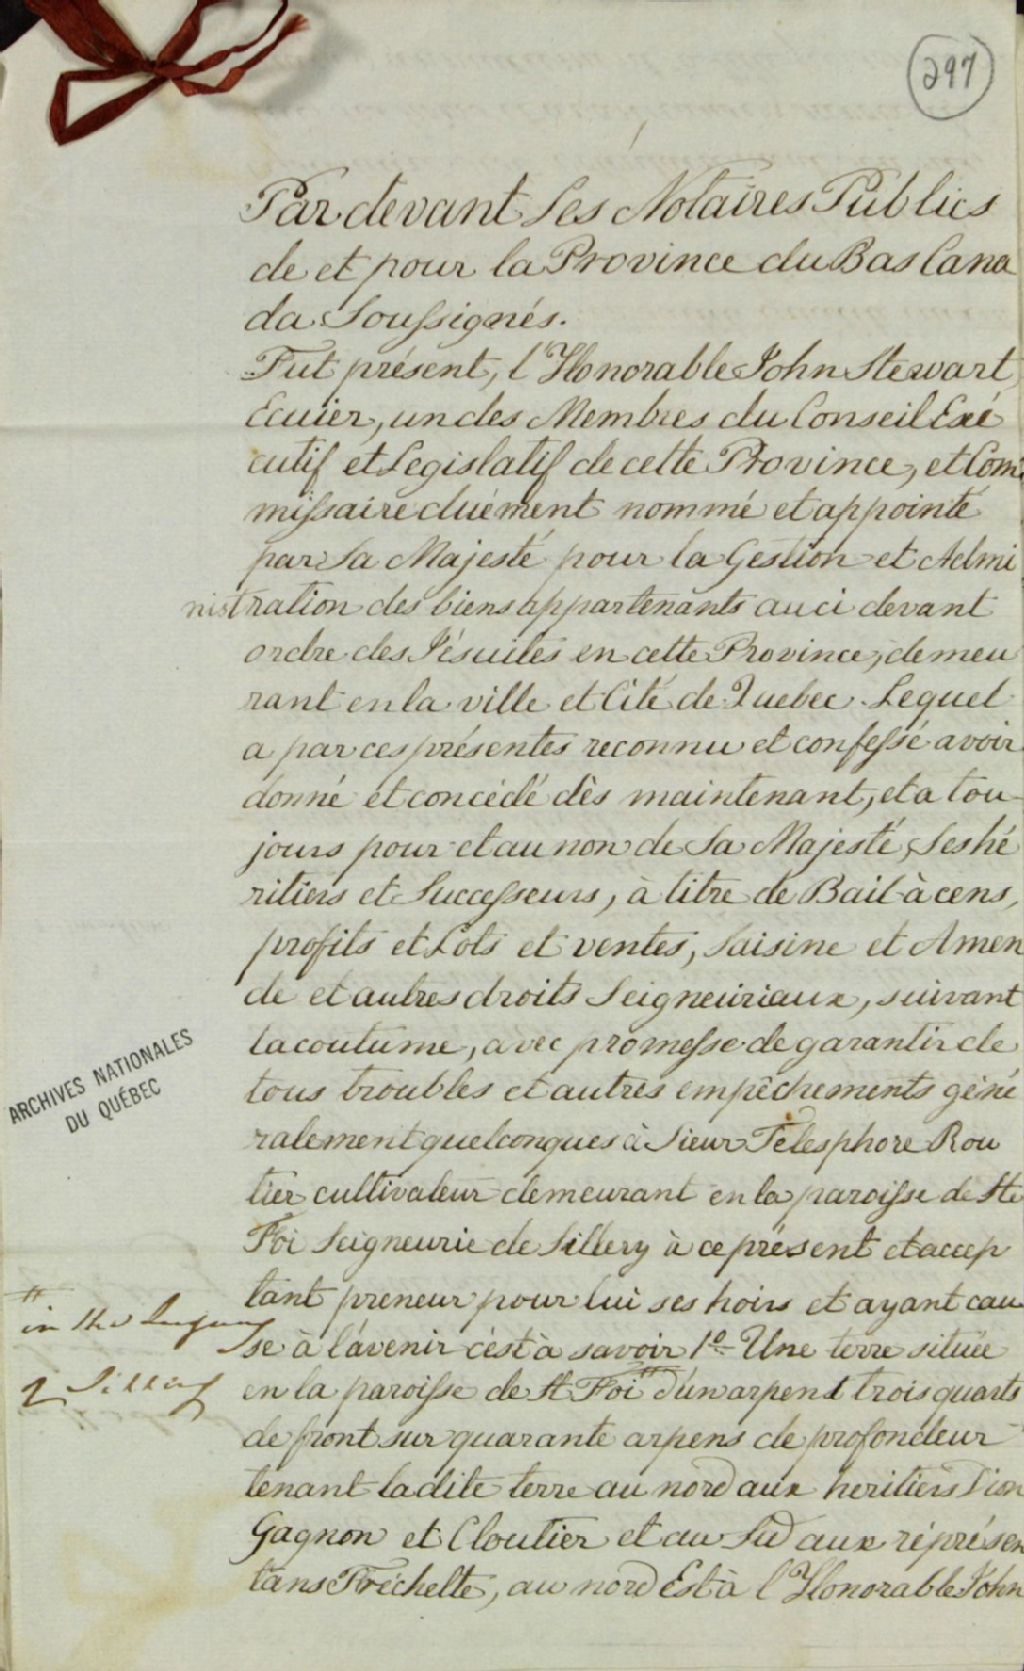 297
Par devant Les Notaires Publics
de et pour la Province du Bas Cana
da Soussignés.
Fut présent, l'Honorable John Stewart
Ecuier, un des Membres du Conseil Exé
cutif et Legislatif de cette Province, et Com
missaire duëment nommé et appointé
par Sa Majesté pour la Gestion et Admi
nistration des biens appartenants au ci devant
ordre des Jésuites en cette Province, demeu
rant en la ville et Cité de Quebec. Lequel
a par ces présentes reconnu et confessé avoir
donné et concédé dès maintenant, et a tou
jours pour et au non de Sa Majesté, Ses hé
ritiers et Successeurs, à titre de Bail à cens,
profits et Lots et ventes, Saisine et Amen
de et autres droits Seigneuriaux, suivant
la coutume, avec promesse de garantir de
tous troubles et autres empêchements géné
ralement quelconques à Sieur Télesphore Rou
tier cultivateur demeurant en la paroisse de Ste
Foi Seigneurie de Sillery à ce présent et accep
tant preneur pour lui ses hoirs et ayant cau
se à l'avenir c'est à savoir 1º Une terre située
en la paroisse de St Foi # d'un arpent trois quarts
de front sur quarante arpens de profondeur
tenant la dite terre au nord aux heritiers Dion
Gagnon et Cloutier et au Sud aux réprésen
tans Fréchette, au nord Est à l'Honorable John
#
in the
Sillery
ARCHIVES NATIONALES
DU QUÉBEC